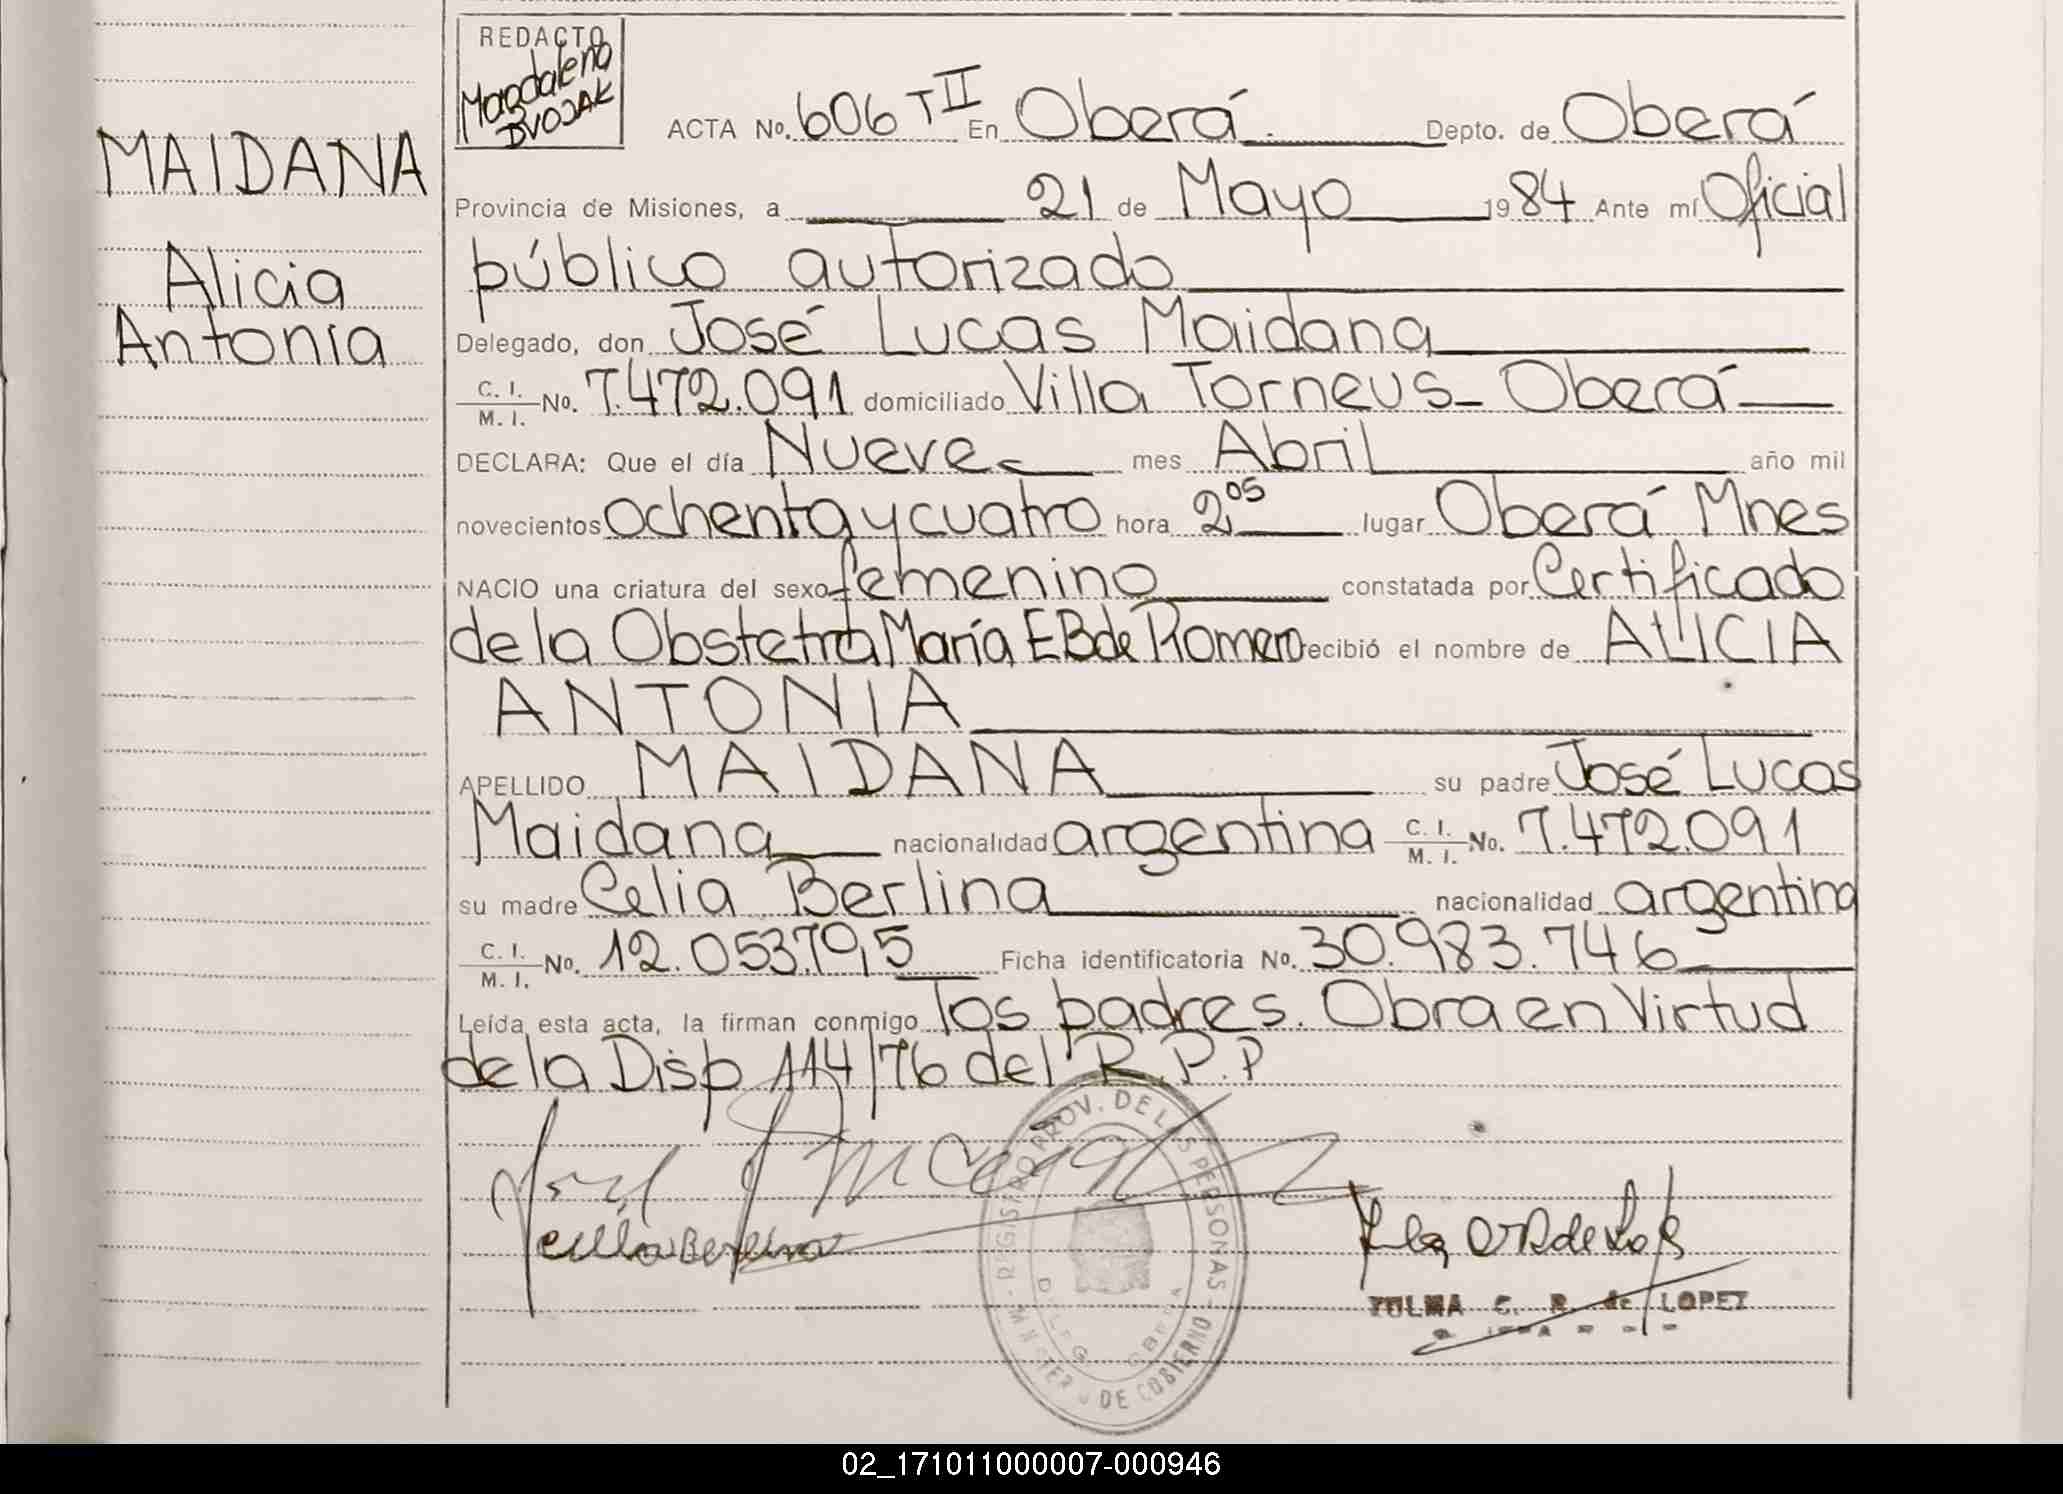 REDACTO
Magdalena
DVOJAK
MAIDANA
Alicia
Antonia
ACTA No. 606 T II En Oberá Depto. de Oberá
Provincia de Misiones, a 21 de Mayo 1984 Ante mí Oficial
público autorizado
Delegado, don José Lucas Maidana
C. I. / M. I. No. 7.472.091 domiciliado Villa Torneus - Oberá
DECLARA: Que el día Nueve mes Abril año mil
novecientos ochenta y cuatro hora 2,05 lugar Oberá Mnes
NACIO una criatura del sexo femenino constatada por Certificado
de la Obstetra María E B de Romero recibió el nombre de ALICIA
ANTONIA
APELLIDO MAIDANA su padre José Lucas
Maidana nacionalidad argentina C. I. / M. I. No. 7.472.091
su madre Celia Berlina nacionalidad argentina
C. I. / M. I. No. 12.053.79,5 Ficha identificatoria No. 30.983.746
Leída esta acta, la firman conmigo los padres. Obra en Virtud
de la Disp 114/76 del R.P.P
REGISTRO PROV. DE LAS PERSONAS - MINISTERIO DE GOBIERNO
C. R. de LOPEZ
02_171011000007-000946